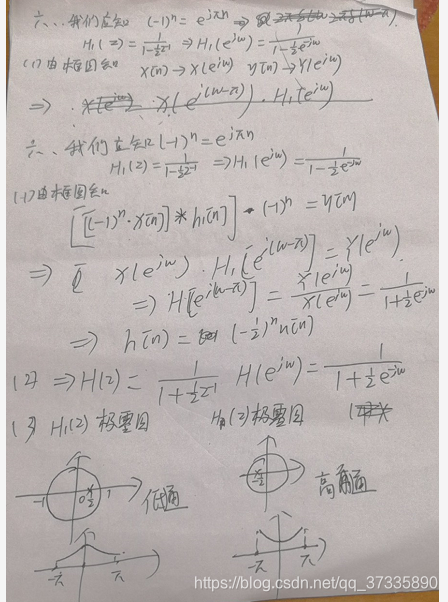 六、我们应知 (-1)ⁿ = e^{jπn} ⇒
H₁(z) = 1/(1-½z⁻¹) ⇒ H₁(e^{jw}) = 1/(1-½e^{-jw})
(1) 由框图知 x[n] → X(e^{jw}) y[n] → Y(e^{jw})
⇒ X(e^{j(w-π)}) · H₁(e^{jw})
六、我们应知 (-1)ⁿ = e^{jπn}
H₁(z) = 1/(1-½z⁻¹) ⇒ H₁(e^{jw}) = 1/(1-½e^{-jw})
(1) 由框图知
[[(-1)ⁿ · x[n]] * h₁[n]] · (-1)ⁿ = y[n]
⇒ X(e^{jw}) · H₁[e^{j(w-π)}] = Y(e^{jw})
⇒ H[e^{j(w-π)}] = Y(e^{jw})/X(e^{jw}) = 1/(1+½e^{-jw})
⇒ h[n] = (-½)ⁿ u[n]
(2) ⇒ H(z) = 1/(1+½z⁻¹) H(e^{jw}) = 1/(1+½e^{-jw})
(3) H₁(z) 极零图 H(z) 极零图
-1 0 ½ 1 低通 -½ 高通
-π π -π π
https://blog.csdn.net/qq_37335890